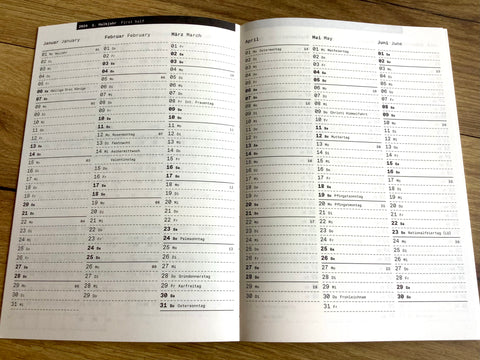 2024 1. Halbjahr First Half
Januar January
01 Mo Neujahr 01
02 Di
03 Mi
04 Do
05 Fr
06 Sa Heilige Drei Könige
07 So
08 Mo 02
09 Di
10 Mi
11 Do
12 Fr
13 Sa
14 So
15 Mo 03
16 Di
17 Mi
18 Do
19 Fr
20 Sa
21 So
22 Mo 04
23 Di
24 Mi
25 Do
26 Fr
27 Sa
28 So
29 Mo 05
30 Di
31 Mi
Februar February
01 Do
02 Fr
03 Sa
04 So
05 Mo 06
06 Di
07 Mi
08 Do
09 Fr
10 Sa
11 So
12 Mo Rosenmontag 07
13 Di Fastnacht
14 Mi Aschermittwoch
Valentinstag
15 Do
16 Fr
17 Sa
18 So
19 Mo 08
20 Di
21 Mi
22 Do
23 Fr
24 Sa
25 So
26 Mo 09
27 Di
28 Mi
29 Do
März March
01 Fr
02 Sa
03 So
04 Mo 10
05 Di
06 Mi
07 Do
08 Fr Int. Frauentag
09 Sa
10 So
11 Mo 11
12 Di
13 Mi
14 Do
15 Fr
16 Sa
17 So
18 Mo 12
19 Di
20 Mi
21 Do
22 Fr
23 Sa
24 So Palmsonntag
25 Mo 13
26 Di
27 Mi
28 Do Gründonnerstag
29 Fr Karfreitag
30 Sa
31 So Ostersonntag
April
01 Mo Ostermontag 14
02 Di
03 Mi
04 Do
05 Fr
06 Sa
07 So
08 Mo 15
09 Di
10 Mi
11 Do
12 Fr
13 Sa
14 So
15 Mo 16
16 Di
17 Mi
18 Do
19 Fr
20 Sa
21 So
22 Mo 17
23 Di
24 Mi
25 Do
26 Fr
27 Sa
28 So
29 Mo 18
30 Di
Mai May
01 Mi Maifeiertag
02 Do
03 Fr
04 Sa
05 So
06 Mo 19
07 Di
08 Mi
09 Do Christi Himmelfahrt
10 Fr
11 Sa
12 So Muttertag
13 Mo 20
14 Di
15 Mi
16 Do
17 Fr
18 Sa
19 So Pfingstsonntag
20 Mo Pfingstmontag 21
21 Di
22 Mi
23 Do
24 Fr
25 Sa
26 So
27 Mo 22
28 Di
29 Mi
30 Do Fronleichnam
31 Fr
Juni June
01 Sa
02 So
03 Mo 23
04 Di
05 Mi
06 Do
07 Fr
08 Sa
09 So
10 Mo 24
11 Di
12 Mi
13 Do
14 Fr
15 Sa
16 So
17 Mo 25
18 Di
19 Mi
20 Do
21 Fr
22 Sa
23 So Nationalfeiertag (LU)
24 Mo 26
25 Di
26 Mi
27 Do
28 Fr
29 Sa
30 So